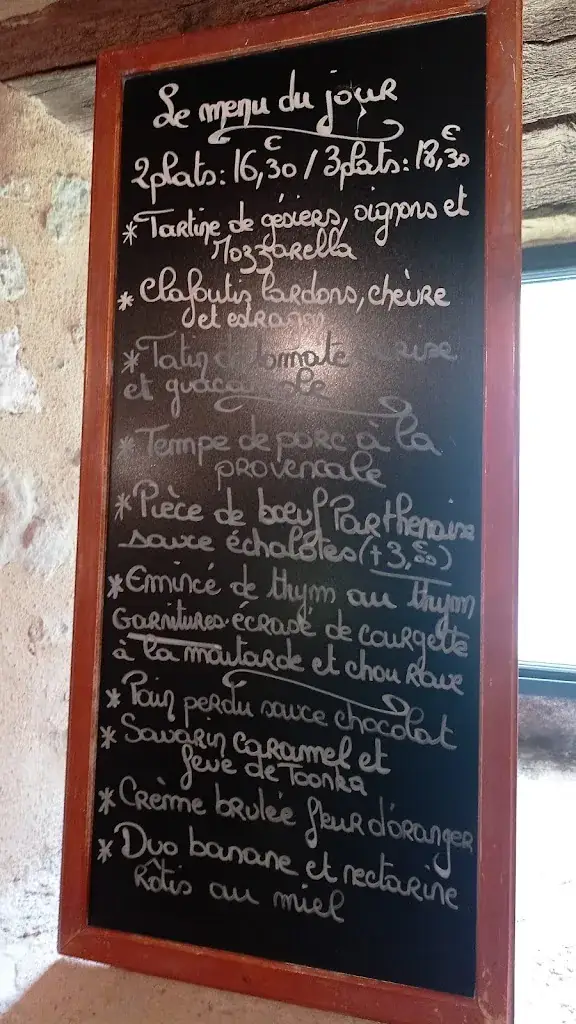 Le menu du jour
2 plats: 16,€30 / 3 plats: 18,€30
* Tartine de gésiers, oignons et
Mozzarella
* Clafoutis lardons, chèvre
et estragon
* Tatin de tomate
et guacamole
* Tempe de porc à la
provencale
* Pièce de bœuf Parthenaise
sauce échalotes (+3,€00)
* Emincé de thym au thym
Garnitures: écrasé de courgette
à la moutarde et chou Rave
* Pain perdu sauce chocolat
* Savarin caramel et
feve de Toonka
* Crème brulée fleur d'oranger
* Duo banane et nectarine
Rôtis au miel